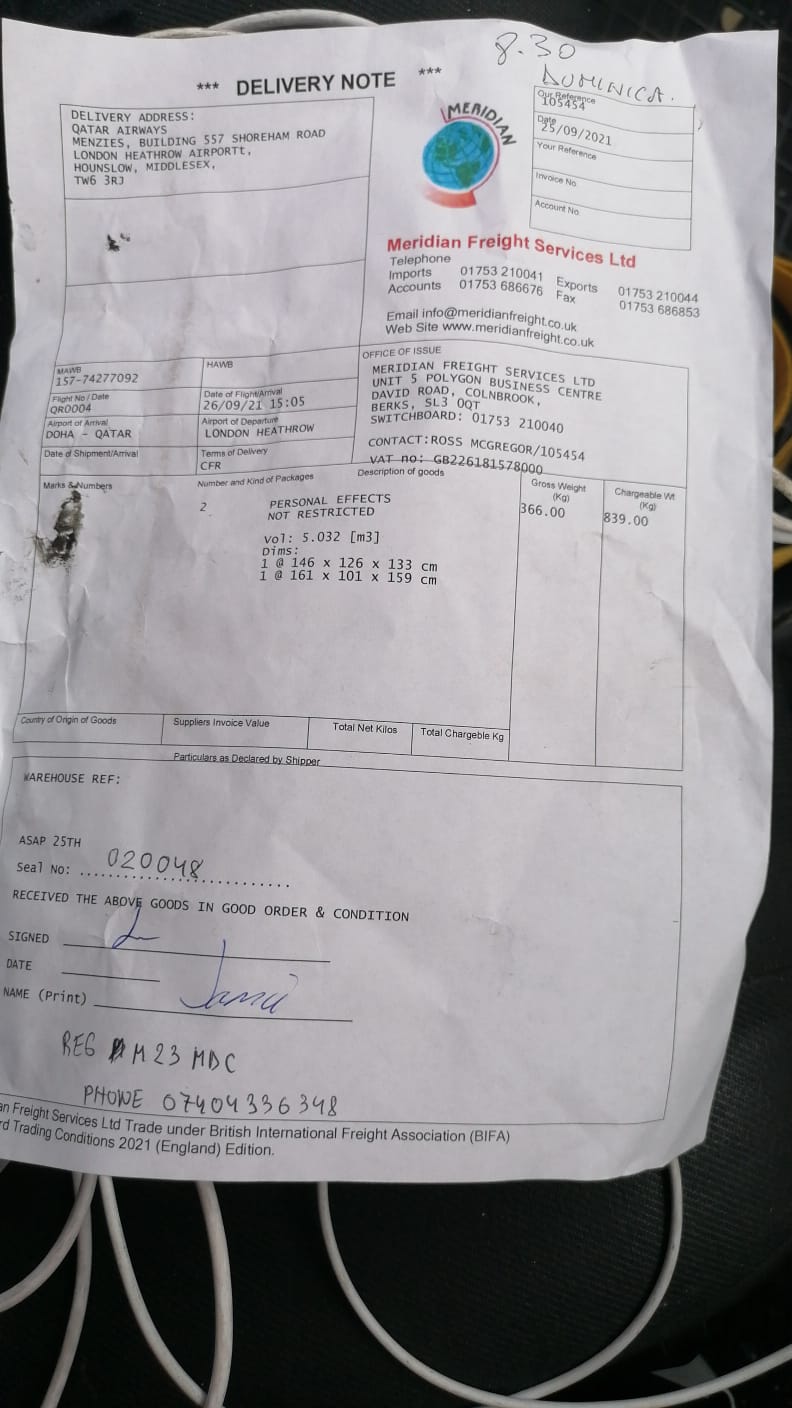 8.30
DOMINICA.
*** DELIVERY NOTE ***
DELIVERY ADDRESS:
QATAR AIRWAYS
MENZIES, BUILDING 557 SHOREHAM ROAD
LONDON HEATHROW AIRPORTT,
HOUNSLOW, MIDDLESEX,
TW6 3RJ
MERIDIAN
Our Reference
105454
Date
25/09/2021
Your Reference
Invoice No
Account No
Meridian Freight Services Ltd
Telephone
Imports 01753 210041 Exports 01753 210044
Accounts 01753 686676 Fax 01753 686853
Email info@meridianfreight.co.uk
Web Site www.meridianfreight.co.uk
MAWB
157-74277092
HAWB
Flight No / Date
QR0004
Date of Flight/Arrival
26/09/21 15:05
Airport of Arrival
DOHA - QATAR
Airport of Departure
LONDON HEATHROW
Date of Shipment/Arrival
Terms of Delivery
CFR
OFFICE OF ISSUE
MERIDIAN FREIGHT SERVICES LTD
UNIT 5 POLYGON BUSINESS CENTRE
DAVID ROAD, COLNBROOK,
BERKS, SL3 0QT
SWITCHBOARD: 01753 210040
CONTACT:ROSS MCGREGOR/105454
VAT no: GB226181578000
Marks & Numbers Number and Kind of Packages Description of goods Gross Weight (Kg) Chargeable Wt (Kg)
2 PERSONAL EFFECTS 366.00 839.00
NOT RESTRICTED
Vol: 5.032 [m3]
Dims:
1 @ 146 x 126 x 133 cm
1 @ 161 x 101 x 159 cm
Country of Origin of Goods Suppliers Invoice Value Total Net Kilos Total Chargeble Kg
Particulars as Declared by Shipper
WAREHOUSE REF:
ASAP 25TH
Seal No: 020048
RECEIVED THE ABOVE GOODS IN GOOD ORDER & CONDITION
SIGNED
DATE
NAME (Print)
REG M23 MDC
PHONE 07404336348
an Freight Services Ltd Trade under British International Freight Association (BIFA)
rd Trading Conditions 2021 (England) Edition.